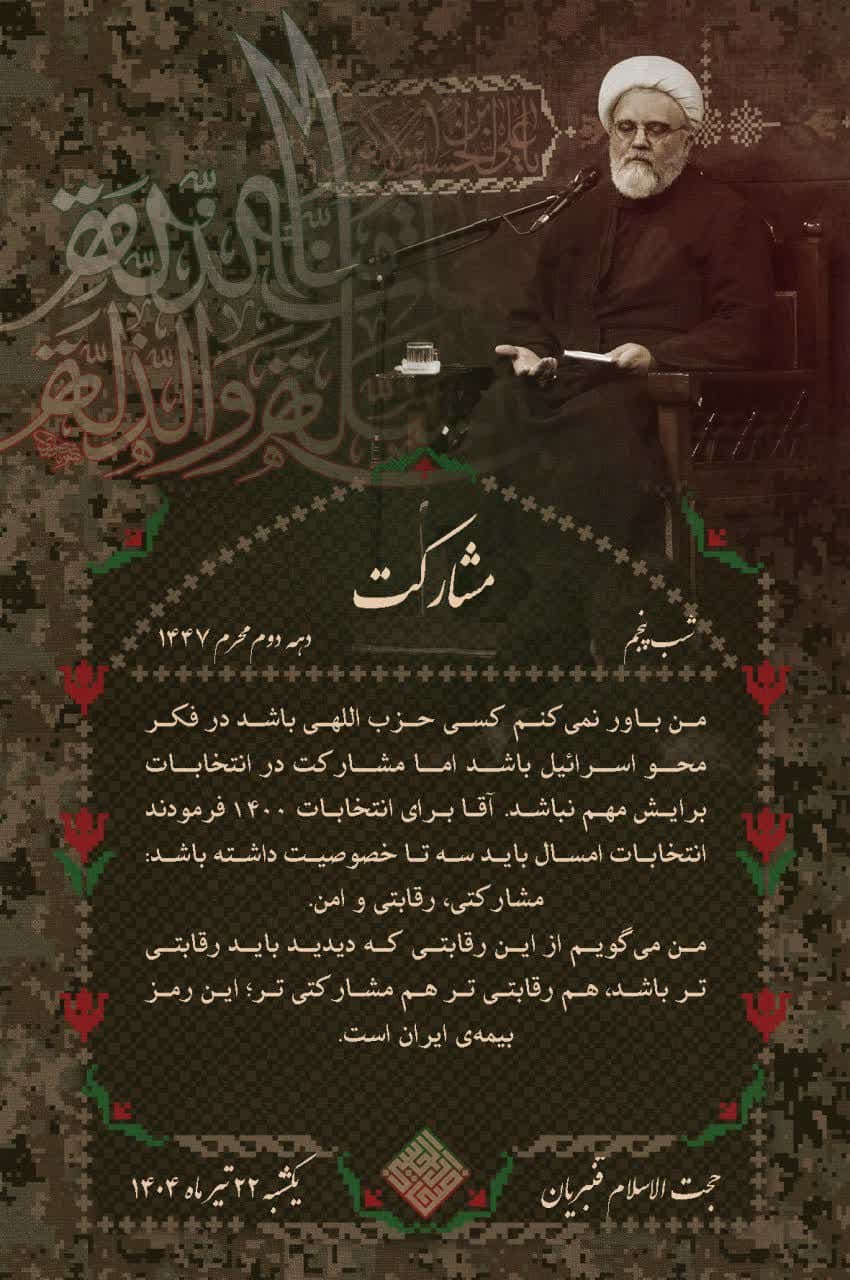 یا علی بن الحسین
هیهات منا الذلة
السلة والذلة
مشارکت
شب پنجم
دهه دوم محرم ۱۴۴۷
من باور نمی‌کنم کسی حزب اللهی باشد در فکر
محو اسرائیل باشد اما مشارکت در انتخابات
برایش مهم نباشد. آقا برای انتخابات ۱۴۰۰ فرمودند
انتخابات امسال باید سه تا خصوصیت داشته باشد:
مشارکتی، رقابتی و امن.
من می‌گویم از این رقابتی که دیدید باید رقابتی
تر باشد، هم رقابتی تر هم مشارکتی تر؛ این رمز
بیمه‌ی ایران است.
حجت الاسلام قنبریان
یکشنبه ۲۲ تیر ماه ۱۴۰۴